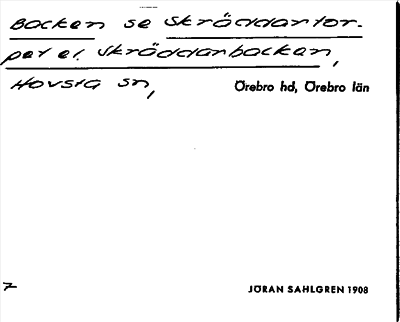 Backen se Skräddartor-
pet el. Skräddarbacken,
Hovsta sn,
Örebro hd, Örebro län
7
JÖRAN SAHLGREN 1908